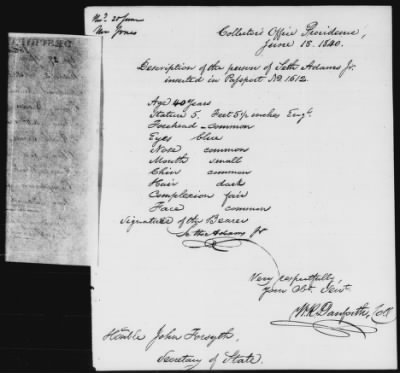 Collector's Office Providence,
June 18. 1840.
Description of the person of Seth Adams Jr.
inserted in Passport No. 1612.
Age 40 Years
Stature 5. Feet 5½ inches Engh.
Forehead - common
Eyes blue
Nose common
Mouth small
Chin common
Hair dark
Complexion fair
Face common
Signature of the Bearer
Seth Adams Jr
Very respectfully
Your Obt. Servt.
W. R. Danforth, Coll
Honble John Forsyth,
Secretary of State.